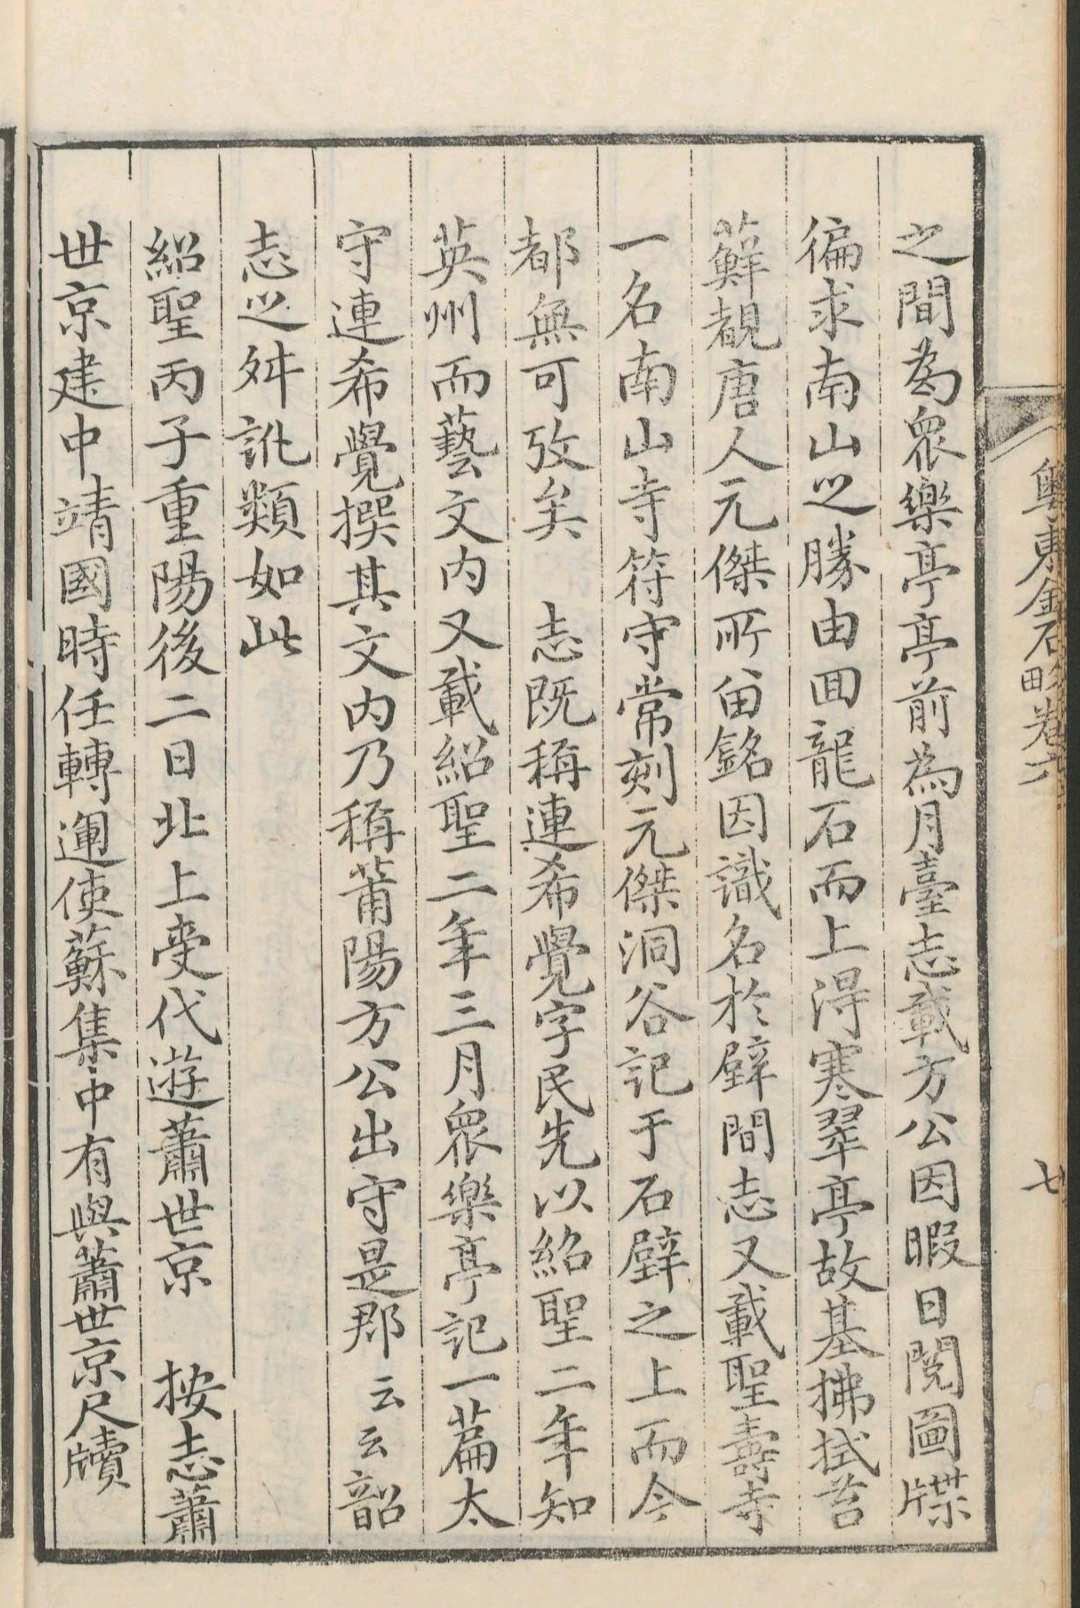 之間為衆樂亭亭前為月臺志載方公因暇日閱圖牒
徧求南山之勝由囬龍石而上得寒翠亭故基拂拭苔
蘚覩唐人元傑所留銘因識名於壁間志又載聖壽寺
一名南山寺符守常刻元傑洞谷記于石壁之上而今
都無可攷矣　志既稱連希覺字民先以紹聖二年知
英州而藝文内又載紹聖二年三月衆樂亭記一篇太
守連希覺撰其文内乃稱莆陽方公出守是郡云云韶
志之舛訛類如此
紹聖丙子重陽後二日北上受代遊蕭世京　按志蕭
世京建中靖國時任轉運使蘇集中有與蕭世京尺牘
粤東金石畧卷六
七